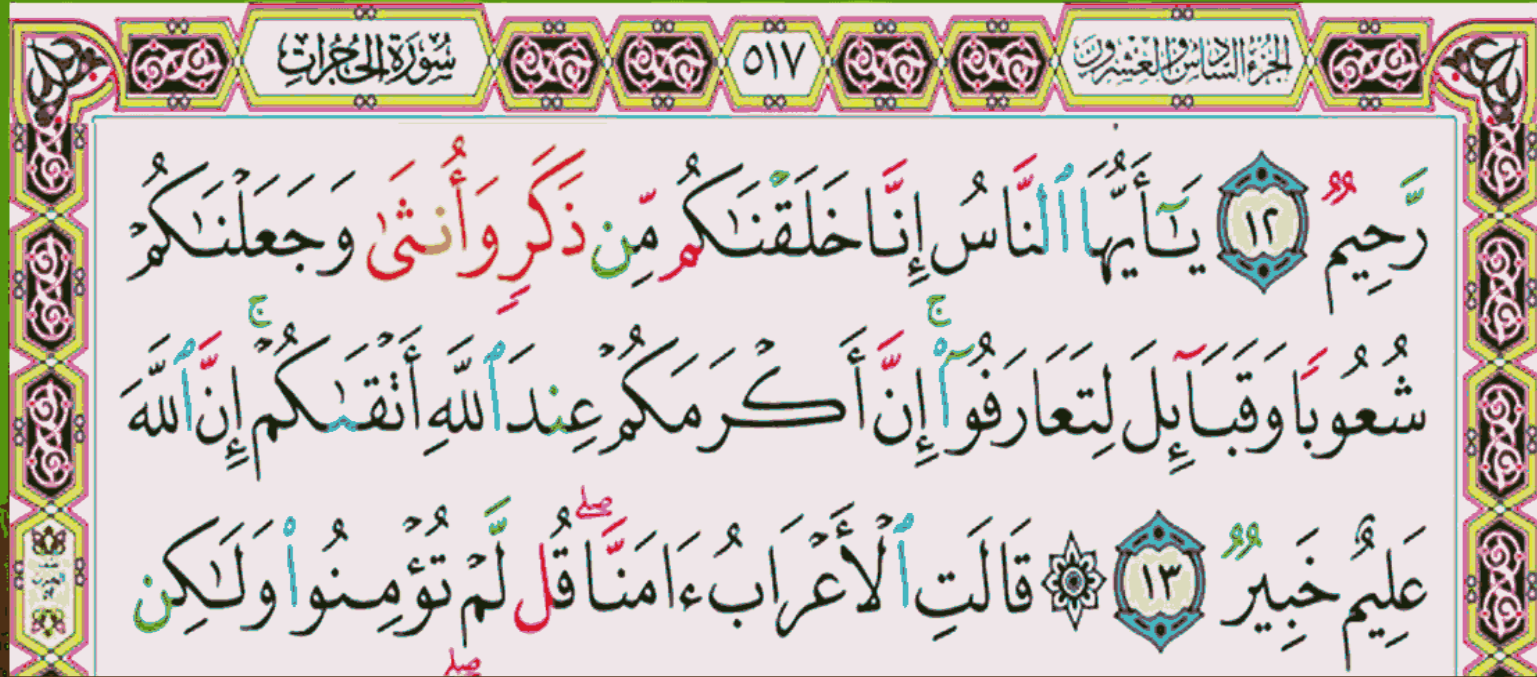 الجزء السادس والعشرون ٥١٧ سُورَةُ الحُجُرَاتِ
رَّحِيمٌ ١٢ يَـٰٓأَيُّهَا ٱلنَّاسُ إِنَّا خَلَقْنَـٰكُم مِّن ذَكَرٍ وَأُنثَىٰ وَجَعَلْنَـٰكُمْ
شُعُوبًا وَقَبَآئِلَ لِتَعَارَفُوٓا۟ ۚ إِنَّ أَكْرَمَكُمْ عِندَ ٱللَّهِ أَتْقَىٰكُمْ ۚ إِنَّ ٱللَّهَ
عَلِيمٌ خَبِيرٌ ١٣ ۞ قَالَتِ ٱلْأَعْرَابُ ءَامَنَّا ۖ قُل لَّمْ تُؤْمِنُوا۟ وَلَـٰكِن
ۖ